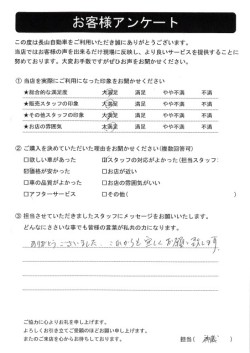 お客様アンケート
この度は長山自動車をご利用いただき誠にありがとうございます。
当店ではお客様の声を出来るだけ現場に反映し、より良いサービスを提供することに
努めております。大変お手数ですがぜひお声をお聞かせください。
① 当店を実際にご利用になった印象をお聞かせください
★総合的な満足度 大満足 満足 やや不満 不満
★販売スタッフの印象 大満足 満足 やや不満 不満
★その他スタッフの印象 大満足 満足 やや不満 不満
★お店の雰囲気 大満足 満足 やや不満 不満
② ご購入を決めていただいた理由をお聞かせください(複数回答可)
□欲しい車があった ☑スタッフの対応がよかった(担当スタッフ:
☑価格が安かった □お店が近い
□車の品質がよかった □お店の雰囲気がいい
□アフターサービス □その他( )
③ 担当させていただきましたスタッフにメッセージをお願いいたします。
どんなにささいな事でも皆様の言葉が私の力になります。
ありがとうございました。これからも宜しくお願い致します。
ご協力に心よりお礼を申し上げます。
よろしくお引き立てご愛顧のほどお願い申し上げます。
またのご来店を心からお待ちしております。
担当( )